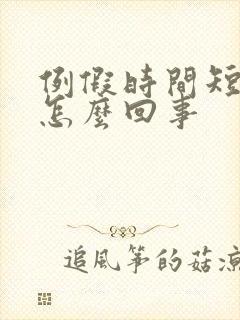 例假時間短
怎麼回事
追風箏的菇涼